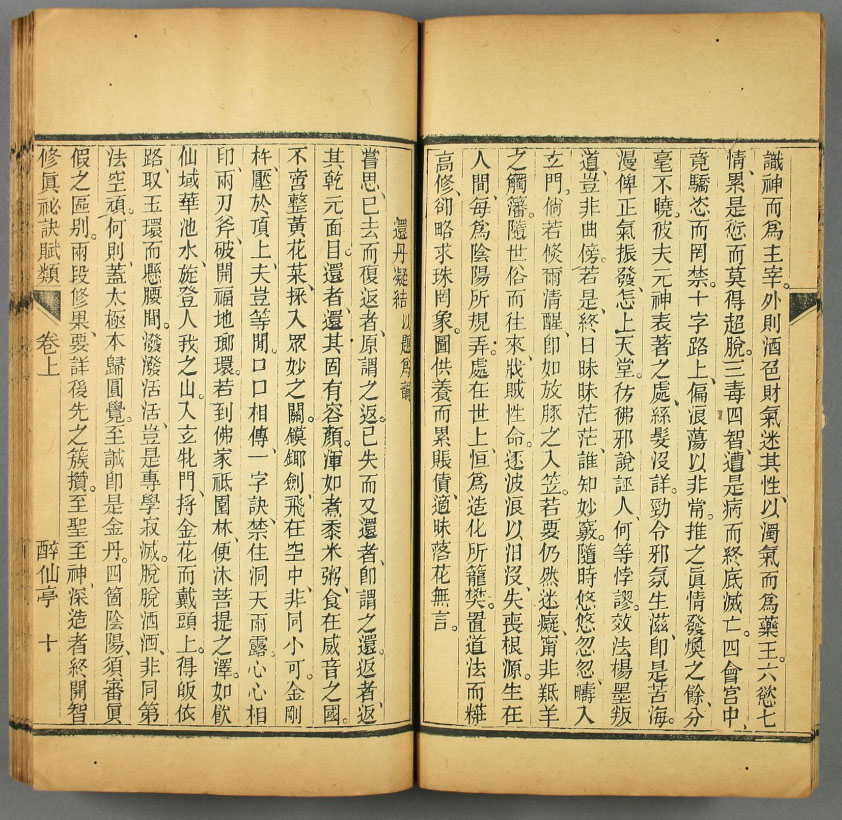 識神而爲主宰。外則酒色財氣迷其性、以濁氣而爲藥王。六慾七
情、累是愆而莫得超脫。三毒四智、遭是病而終底滅亡。四會宮中、
竟驕恣而罔禁。十字路上、偏浪蕩以非常。推之眞情發煥之餘、分
毫不曉。彼夫元神表著之處、絲髮沒詳。勁令邪氛生滋、卽是苦海。
漫俾正氣振發、怎上天堂。彷彿邪說誣人、何等悖謬。效法楊墨叛
道、豈非曲傍。若是、終日昧昧茫茫、誰知妙竅。隨時悠悠忽忽、疇入
玄門。倘若倏爾清醒、卽如放豚之入笠。若要仍然迷癡、甯非羝羊
之觸藩。隨世俗而往來、戕賊性命。逐波浪以汨沒、失喪根源。生在
人間、每爲陰陽所規弄。處在世上、恒爲造化所籠樊。置道法而糚
高修、卻略求珠罔象。圖供養而累賬債、適昧落花無言。
還丹凝結 以題爲韻
嘗思、已去而復返者、原謂之返。已失而又還者、卽謂之還。返者、返
其乾元面目。還者、還其固有容顏。渾如煮黍米粥、食在威音之國。
不啻整黃花菜、採入眾妙之關。鏌鎁劍、飛在空中、非同小可。金剛
杵、壓於頂上、夫豈等閒。口口相傳、一字訣、禁住洞天雨露。心心相
印、兩刃斧、破開福地瑯環。若到佛家祇園林、便沐菩提之澤。如飮
仙域華池水、旋登人我之山。入玄牝門、捋金花而戴頭上。得皈依
路、取玉環而懸腰間。潑潑活活、豈是專學寂滅。脫脫洒洒、非同第
法空頑。何則、蓋太極本歸圓覺。至誠卽是金丹。四箇陰陽、須審眞
假之區别。兩段修果、要詳後先之簇攢。至聖至神、深造者終開智
修眞祕訣賦類 卷上 醉仙亭 十